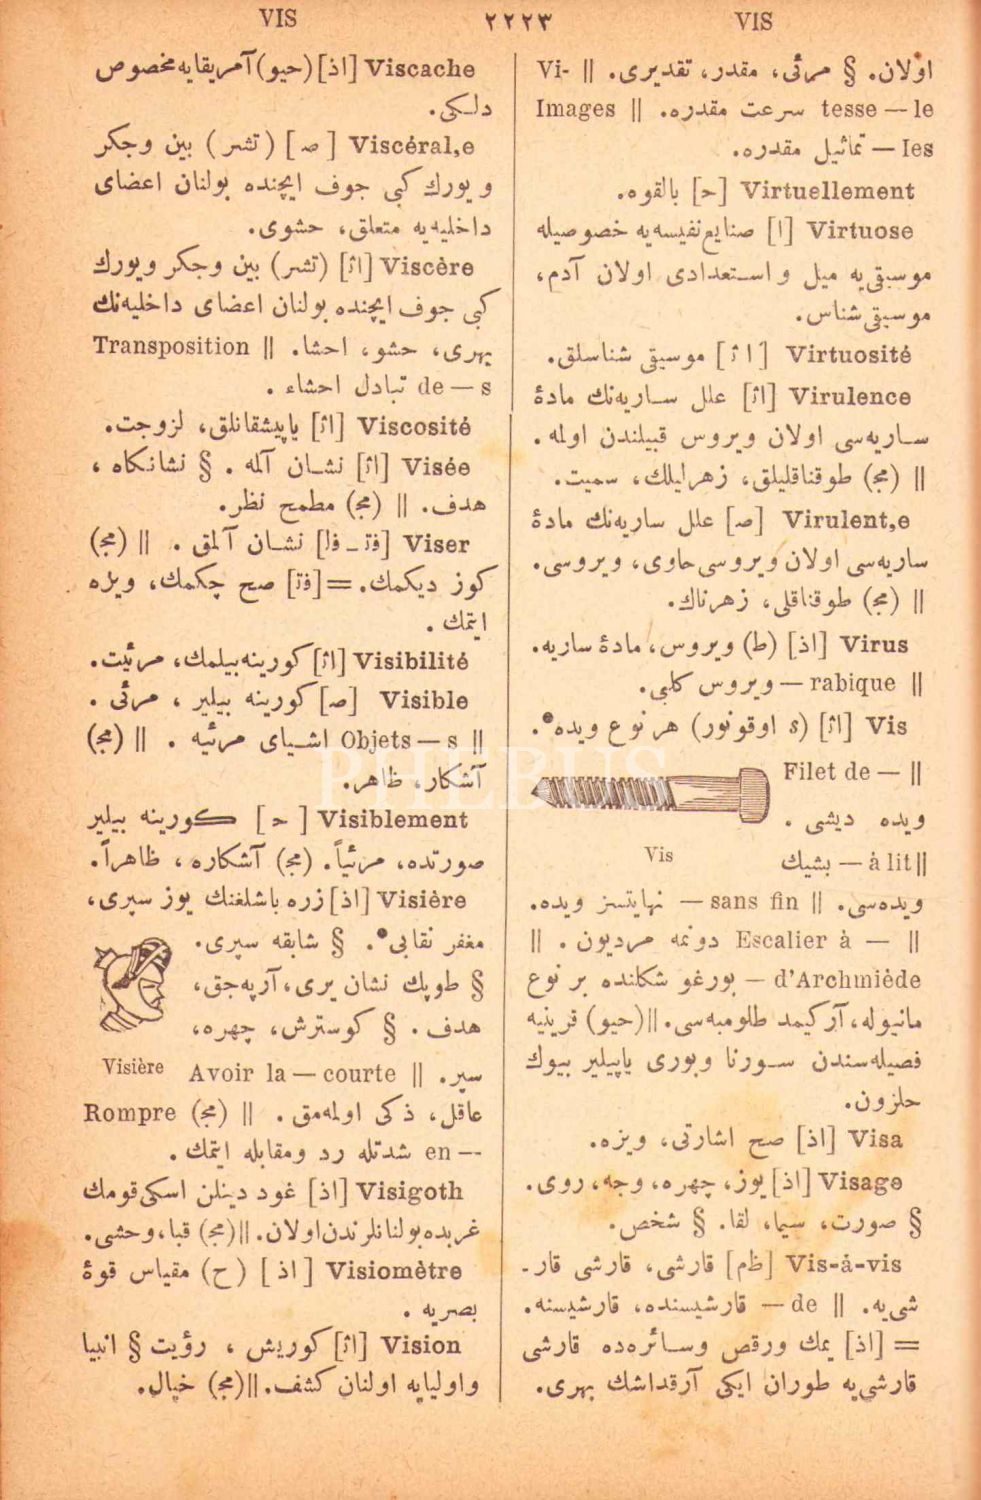 VIS ٢٢٢٣ VIS
اولان. § مرئى، مقدر، تقديرى. || Vi-
tesse — le سرعت مقدره. || Images
— les تماثيل مقدره.
Virtuellement [ح] بالقوه.
Virtuose [ا] صنايع نفيسه‌يه خصوصيله
موسيقى‌يه ميل و استعدادى اولان آدم،
موسيقى شناس.
Virtuosité [اث] موسيقى شناسلق.
Virulence [اث] علل ساريه‌نك مادۀ
ساريه‌سى اولان ويروس قبيلندن اولمه.
|| (مج) طوقناقليلق، زهرليلك، سميت.
Virulent,e [ص] علل ساريه‌نك مادۀ
ساريه‌سى اولان ويروسى حاوى، ويروسى.
|| (مج) طوقناقلى، زهرناك.
Virus [اذ] (ط) ويروس، مادۀ ساريه.
|| rabique — ويروس كلبى.
Vis [اث] (s اوقونور) هر نوع ويده*.
|| Filet de —
ويده ديشى.
Vis
|| à lit — بشيك
ويده‌سى. || sans fin — نهايتسز ويده.
|| Escalier à — دونمه مرديون. ||
d'Archmiède — بورغو شكلنده بر نوع
مانيوله، آركيمد طلومبه‌سى. || (حيو) قرينيه
فصيله‌سندن سورنا وبورى ياپيلير بيوك
حلزون.
Visa [اذ] صح اشارتى، ويزه.
Visage [اذ] يوز، چهره، وجه، روى.
§ صورت، سيما، لقا. § شخص.
Vis-à-vis [ظم] قارشى، قارشى قار-
شى‌يه. || de — قارشيسنده، قارشيسنه.
= [اذ] يمك ورقص وسائره‌ده قارشى
قارشى‌يه طوران ايكى آرقداشك بهرى.
Viscache [اذ] (حيو) آمريقايه مخصوص
دلكى.
Viscéral,e [ص] (تشر) بين وجكر
و يورك كبى جوف ايچنده بولنان اعضاى
داخليه‌يه متعلق، حشوى.
Viscère [اث] (تشر) بين وجكر ويورك
كبى جوف ايچنده بولنان اعضاى داخليه‌نك
بهرى، حشو، احشا. || Transposition
de — s تبادل احشاء.
Viscosité [اث] ياپيشقانلق، لزوجت.
Visée [اث] نشان آلمه. § نشانكاه،
هدف. || (مج) مطمح نظر.
Viser [فة - فل] نشان آلمق. || (مج)
كوز ديكمك. = [فة] صح چكمك، ويزه
ايتمك.
Visibilité [اث] كورينه‌بيلمك، مرئيت.
Visible [ص] كورينه بيلير، مرئى.
|| Objets — s اشياى مرئيه. || (مج)
آشكار، ظاهر.
Visiblement [ح] كورينه بيلير
صورتده، مرئياً. (مج) آشكاره، ظاهراً.
Visière [اذ] زره باشلغنك يوز سپرى،
مغفر نقابى*. § شابقه سپرى.
§ طوپك نشان يرى، آرپه‌جق،
هدف. § كوسترش، چهره،
سير. || Avoir la — courte
Visière
عاقل، ذكى اولمه‌مق. || (مج) Rompre
en — شدتله رد ومقابله ايتمك.
Visigoth [اذ] غود دينلن اسكى قومك
غربده بولنانلرندن اولان. || (مج) قبا، وحشى.
Visiomètre [اذ] (ح) مقياس قوۀ
بصريه.
Vision [اث] كوريش، رؤيت § انبيا
واوليايه اولنان كشف. || (مج) خيال.
PHEBUS